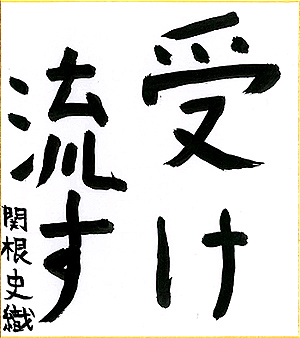 受け
流す
関根史織